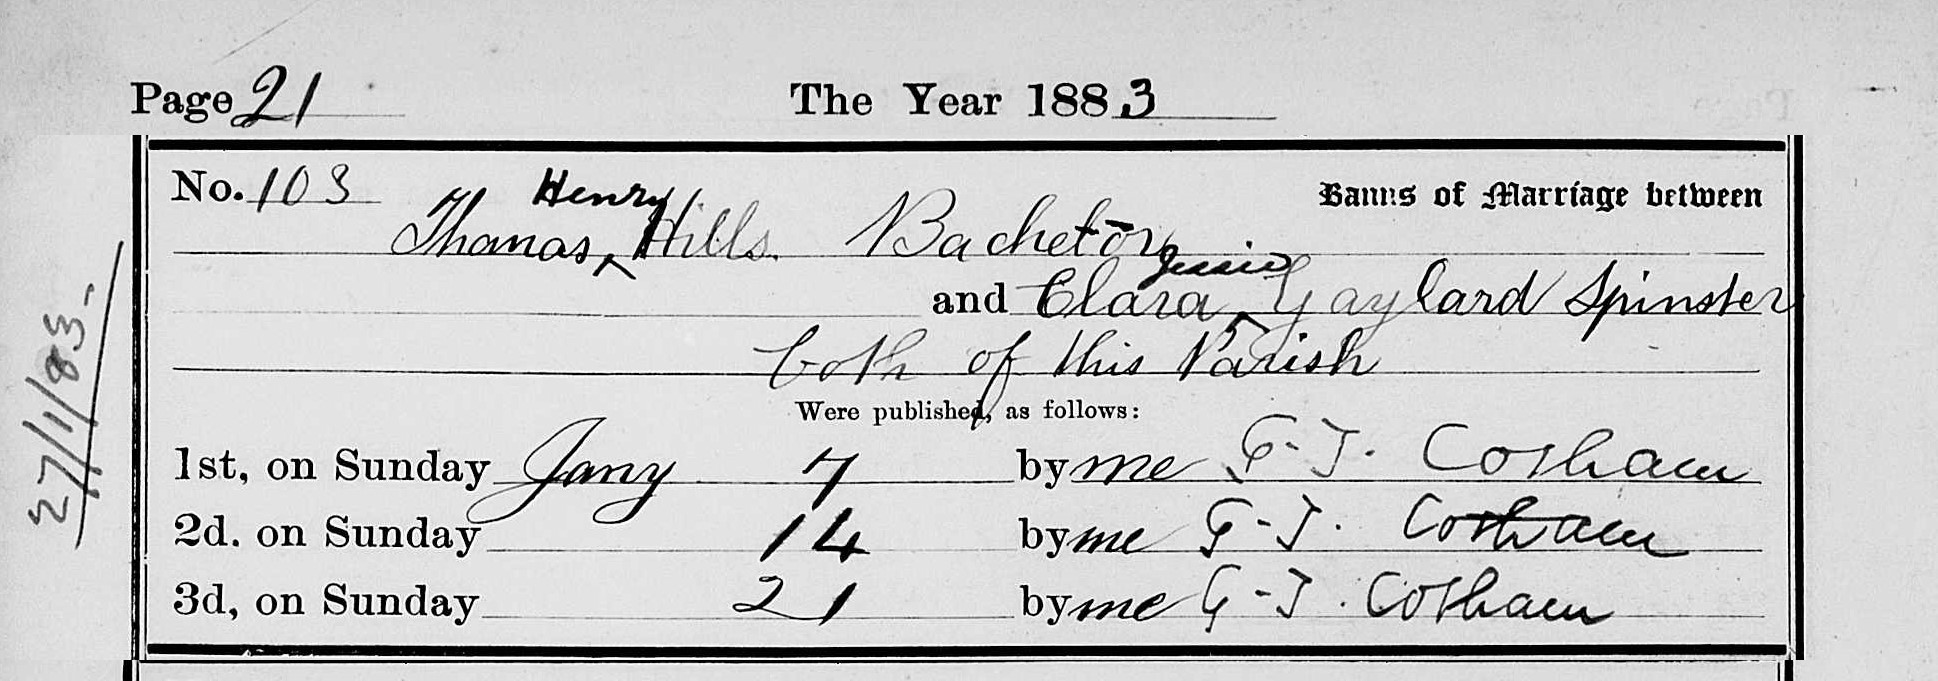 Page 21 The Year 1883
No. 103 Banns of Marriage between
Henry
Thomas ‸ Hills. Bachelor
Jessie
and Clara ‸ Gaylard Spinster
both of this Parish
Were published, as follows:
1st, on Sunday Jany 7 by me G. J. Cosham
2d. on Sunday 14 by me G. J. Cosham
3d, on Sunday 21 by me G. J. Cosham
27/1/83-